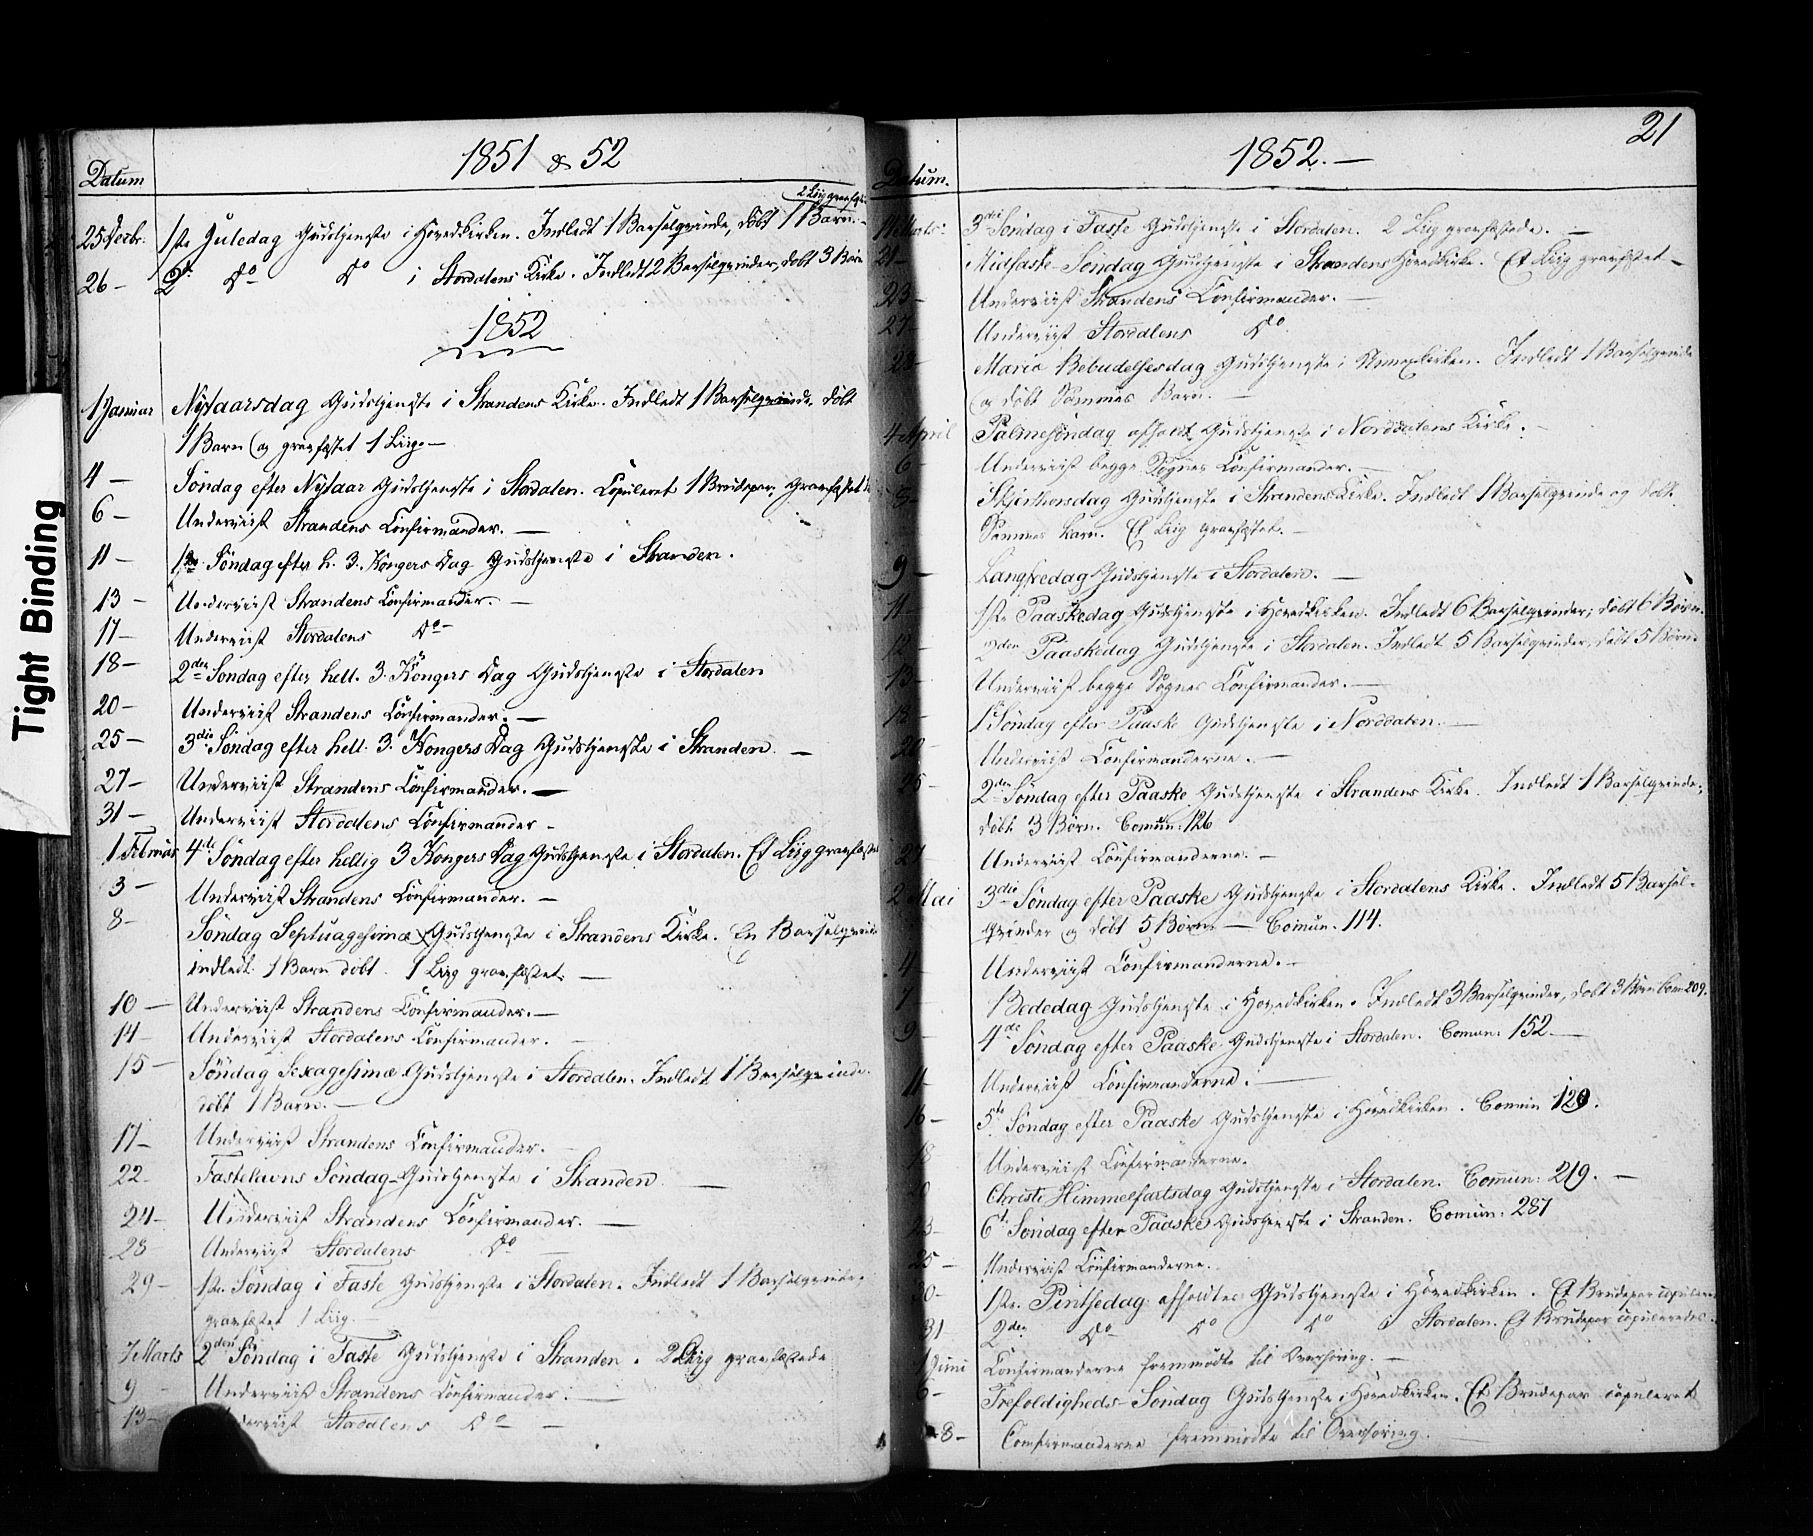 Tight Binding
1851 & 52
Datum
2 Liig gravfæst
25 Decbr. 1ste Juledag Gudstjeneste i Hovedkirken. Indledt 1 Barselqvinde, døbt 1 Barn.
26 – 2den do do i Stordalens Kirke. Indledt 2 Barselqvinder, døbt 3 Børn
1852
1 Januar Nytaarsdag Gudstjeneste i Strandens Kirke. Indledt 1 Barselqvinde, døbt
1 Barn og gravfæstet 1 Liig. –
4 – Søndag efter Nytaar Gudstjeneste i Stordalen. Copuleret 1 Brudepar. Gravfæstet
6 – Underviist Strandens Confirmander. –
11 – 1ste Søndag efter h. 3. Kongers Dag Gudstjeneste i Stranden.
13 – Underviist Strandens Confirmander. –
17 – Underviist Stordalens do –
18 – 2den Søndag efter hell. 3. Kongers Dag Gudstjeneste i Stordalen
20 – Underviist Strandens Confirmander. –
25 – 3die Søndag efter hell. 3. Kongers Dag Gudstjeneste i Stranden. –
27 – Underviist Strandens Confirmander. –
31 – Underviist Stordalens Confirmander –
1 Februar 4de Søndag efter hellig 3 Kongers Dag Gudstjeneste i Stordalen. Et Liig gravfæstet
3 – Underviist Strandens Confirmander. –
8 – Søndag Septuagesimæ Gudstjeneste i Strandens Kirke. En Barselqvinde
indledt. 1 Barn døbt. 1 Liig gravfæstet. –
10 – Underviist Strandens Confirmander. –
14 – Underviist Stordalens Confirmander. –
15 – Søndag Sexagesimæ Gudstjeneste i Stordalen. Indledt 1 Barselqvinde.
døbt 1 Barn. –
17 – Underviist Strandens Confirmander.
22 – Fastelavns Søndag Gudstjeneste i Stranden. –
24 – Underviist Strandens Confirmander. –
28 Underviist Stordalens do –
29 – 1ste Søndag i Faste Gudstjeneste i Stordalen. Indledt 1 Barselqvinde,
gravfæstet 1 Liig. –
7 Marts 2den Søndag i Faste Gudstjeneste i Stranden. 2 Liig gravfæstede
9 – Underviist Strandens Confirmander. –
13 – Underviist Stordalens do –
21
1852. –
Datum.
14 Marts. 3die Søndag i Faste Gudstjeneste i Stordalen. 2 Liig gravfæstede. –
21 – Midfaste-Søndag Gudstjeneste i Strandens Hovedkirke. Et Liig gravfæstet –
23 – Underviist Strandens Confirmander. –
27 – Underviist Stordalens do
28 – Mariæ Bebudelsesdag Gudstjeneste i Annexkirken. Indledt 1 Barselqvinde
og døbt Sammes Barn. –
4 April Palmesøndag afholdt Gudstjeneste i Norddalens Kirke. –
6 – Underviist begge Sognes Confirmander. –
8 – Skjerthorsdag Gudstjeneste i Strandens Kirke. Indledt 1 Barselqvinde og døbt
Sammes Barn. Et Liig gravfæstet. –
9 – Langfredag Gudstjeneste i Stordalen. –
11 – 1ste Paaskedag Gudstjeneste i Hovedkirken. Indledt 6 Barselqvinder; døbt 6 Børn.
12 – 2den Paaskedag Gudstjeneste i Stordalen. Indledt 5 Barselqvinder, døbt 5 Børn.
13 – Underviist begge Sognes Confirmander. –
18 – 1ste Søndag efter Paaske Gudstjeneste i Norddalen. –
20 – Underviist Confirmanderne. –
25 – 2den Søndag efter Paaske Gudstjeneste i Strandens Kirke. Indledt 1 Barselqvinde;
døbt 3 Børn. Comun: 126
27 Underviist Confirmanderne. –
2 Mai 3die Søndag efter Paaske Gudstjeneste i Stordalens Kirke. Indledt 5 Barsel-
qvinder og døbt 5 Børn. – Comun. 114.
4 – Underviist Confirmanderne. –
7 – Bededag Gudstjeneste i Hovedkirken. Indledt 3 Barselqvinder, døbt 3 Børn Com 209.
9 – 4de Søndag efter Paaske Gudstjeneste i Stordalen. Comun: 152. –
11 – Underviist Confirmanderne. –
16 – 5te Søndag efter Paaske Gudstjeneste i Hovedkirken. Comun 129.
18 Underviist Confirmanderne.
20 Christi Himmelfartsdag Gudstjeneste i Stordalen. Comun: 219. –
23 – 6te Søndag efter Paaske Gudstjeneste i Stranden. Comun: 287
25 – Underviist Confirmanderne.
30 – 1ste Pintsedag afholdtes Gudstjeneste i Hovedkirken. Et Brudepar copuleret
31 2den do do do i Stordalen. Et Brudepar copuleredes.
1 Juni Confirmanderne fremmødte til Overhøring. –
6 – Trefoldigheds-Søndag Gudstjeneste i Hovedkirken. Et Brudepar copuleret
8 – Confirmanderne fremmødte til Overhøring. –